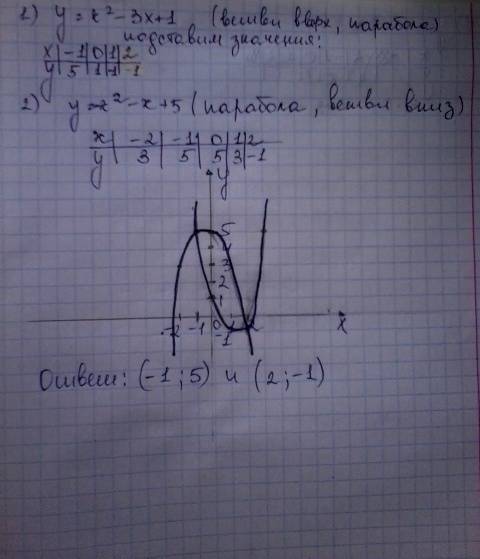 1) y = x² - 3x + 1 (ветви вверх, парабола)
подставим значения:
x | -1 | 0 | 1 | 2
y | 5 | 1 | -1 | -1
2) y = -x² - x + 5 (парабола, ветви вниз)
x | -2 | -1 | 0 | 1 | 2
y | 3 | 5 | 5 | 3 | -1
y
5
4
3
2
1
-2 -1 0 1 2 x
-1
Ответ: (-1; 5) и (2; -1)